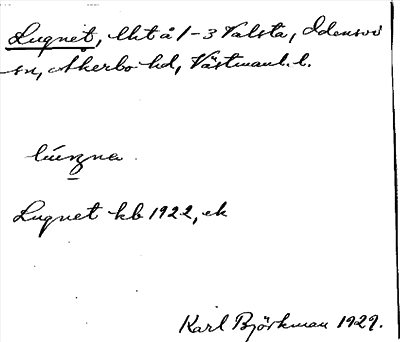 Lugnet, lht å 1-3 Valsta, Odensvi
sn, Åkerbo hd, Västmanl. l.
Lugnet kb 1922, ek
Karl Björkman 1929.